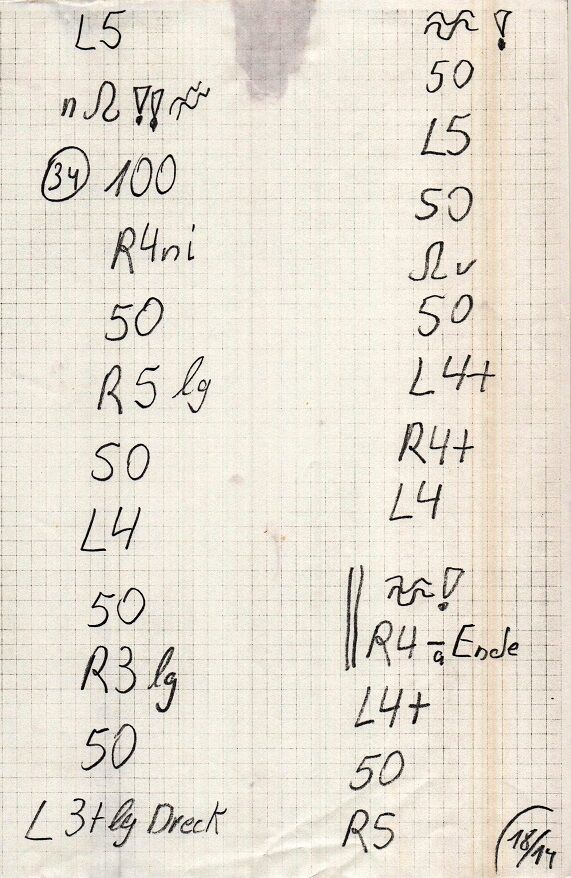 L5
nΩ!!≈
34 100
R4ni
50
R5 lg
50
L4
50
R3 lg
50
L 3+ lg Dreck
≈ !
50
L5
50
Ω v
50
L4+
R4+
L4
≈ !
R4-a Ende
L4+
50
R5
18/14